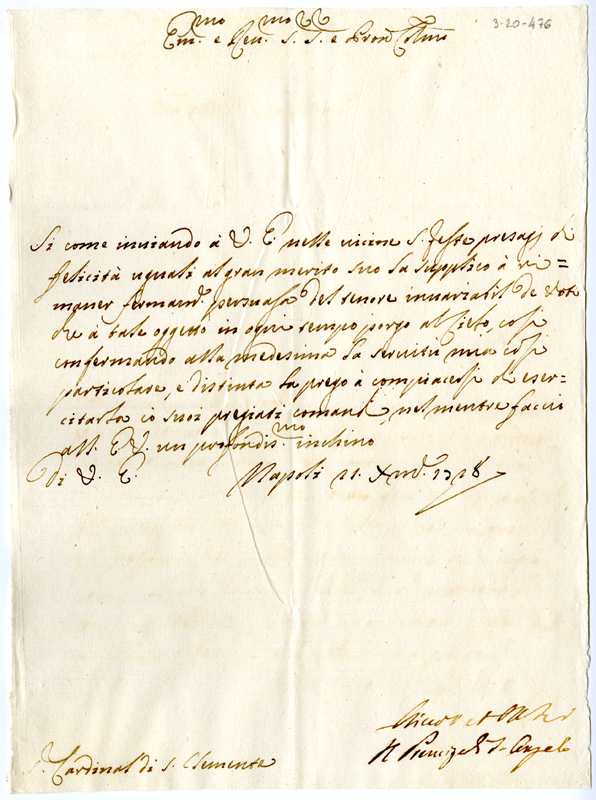 3-20-476
Em.mo e Reu.mo S. S. e Pron Col.mo
Si come inuiando à V. E nelle uicine S. feste presagj di
felicità uguali al gran merito suo la supplico à ri=
maner fermam.te persuasa del tenore inuariabil de Voti
che à tale oggetto in ogni tempo porgo al Cielo, così
confermando alla medesima la seruitù mia così
particolare, e distinta la prego à compiacersi di eser=
citarla co suoi pregiati comandi, nel mentre faccio
all. E V. un profondis.mo inchino
Di V. E. Napoli 21. Xmb. 1728
Il Principe di S. Angelo
S. Cardinal di S. Clemente